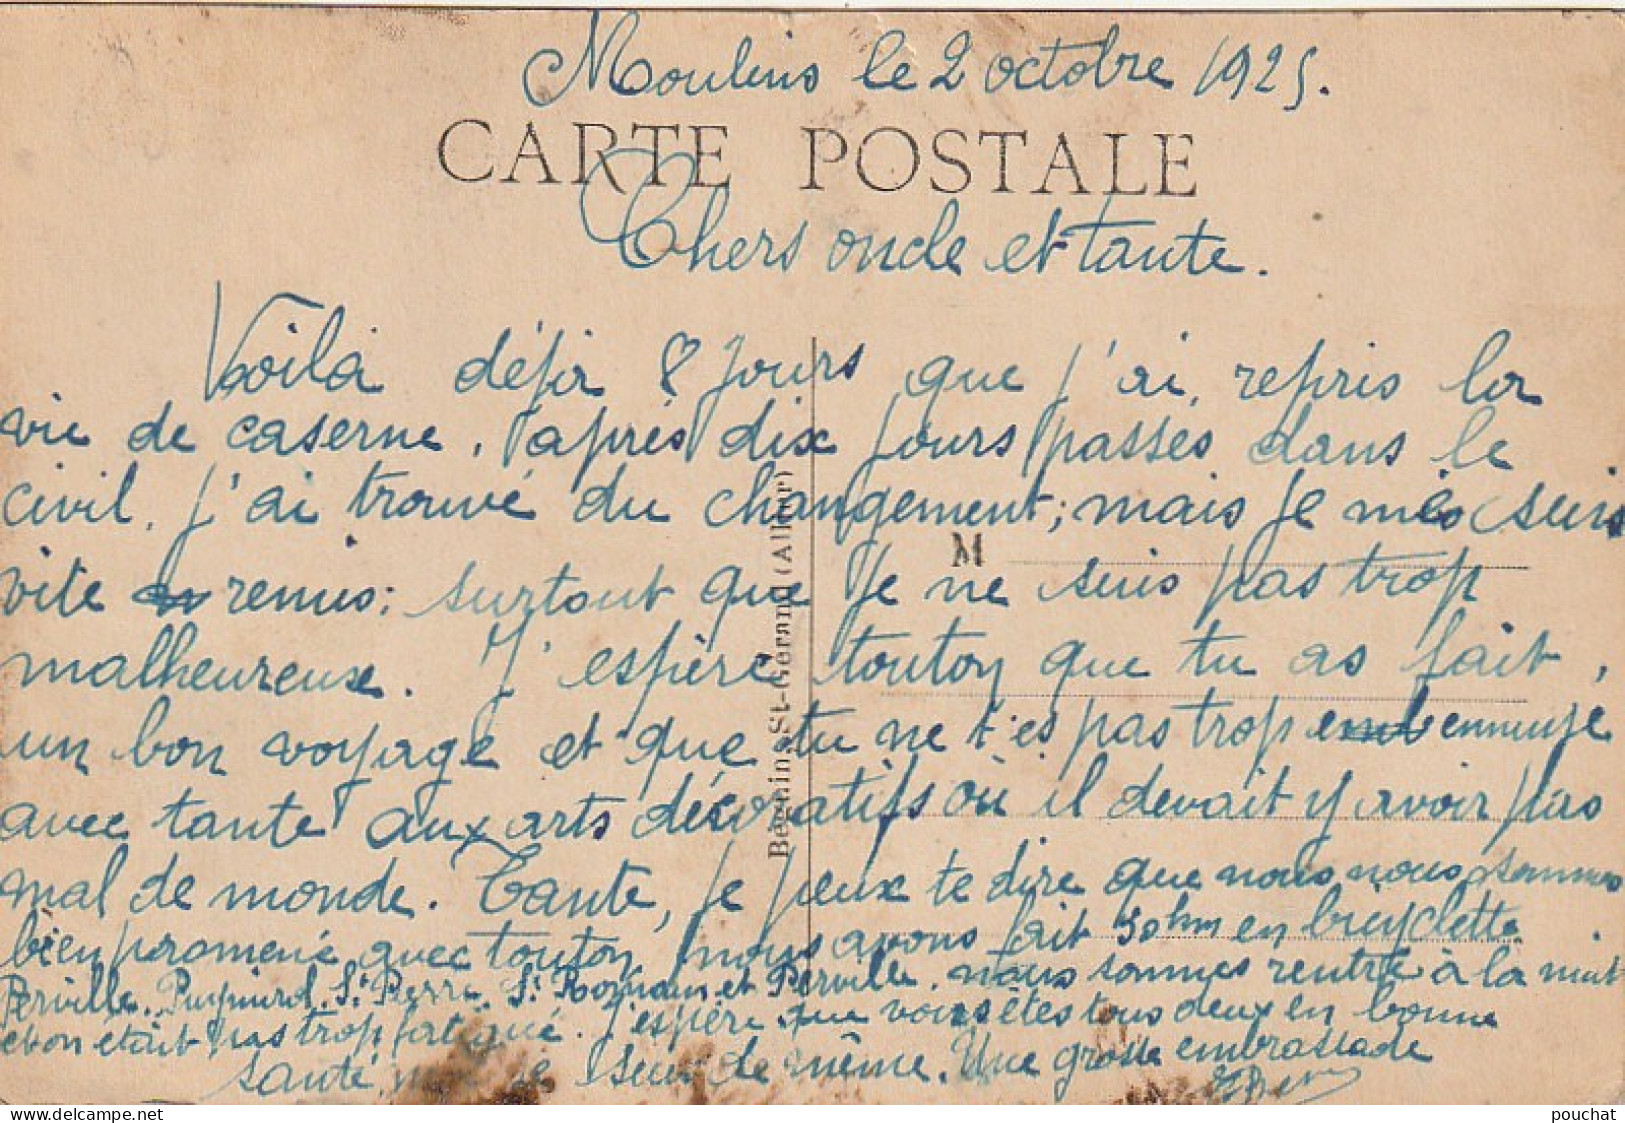 Moulins le 2 octobre 1925.
CARTE POSTALE
Chers oncle et tante.
Voilà déjà 8 jours que j'ai repris la
vie de caserne, après dix jours passés dans le
civil, j'ai trouvé du changement; mais je m'és suis
vite remis; surtout que je ne suis pas trop
M
malheureuse. J'espère tonton que tu as fait,
un bon voyage et que tu ne t'es pas trop ennuyé
avec tante aux arts décoratifs où il devait y avoir pas
mal de monde. Tante, je peux te dire que nous nous sommes
bien promené avec tonton, nous avons fait 50 km en bicyclette
Perville, Puymirol, St Pierre, St Romain, et Perville, nous sommes rentré à la nuit
et on était pas trop fatigué. J'espère que vous êtes tous deux en bonne
santé, je suis de même. Une grosse embrassade
Béguin, St-Gérand (Allier)
pouchat